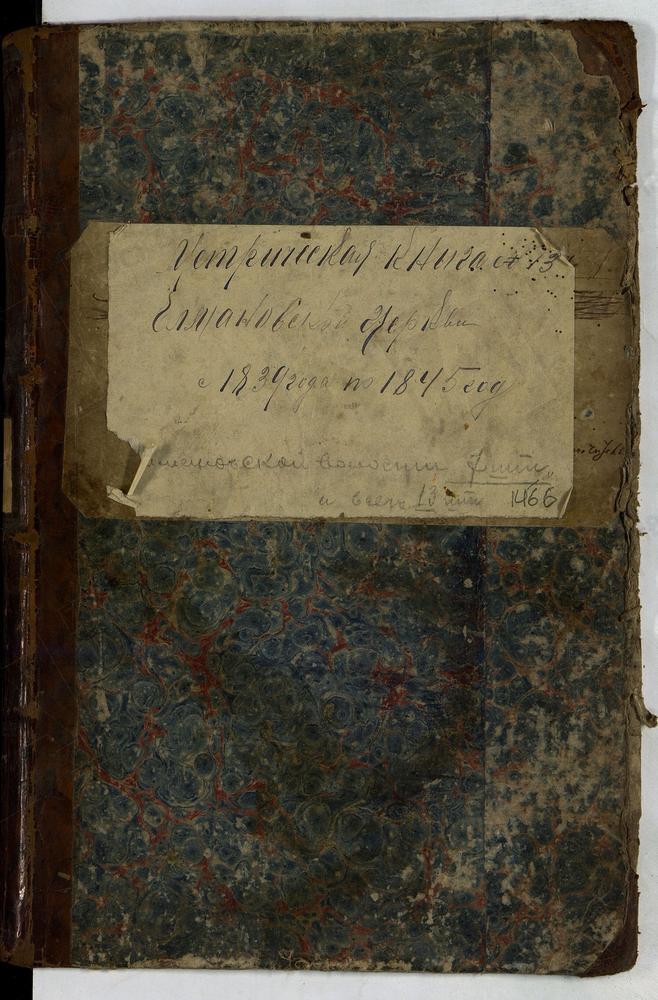 Метрическая книга
Елмановской Церкви
с 1839 года по 1845 год
волости
и всего 13 1466